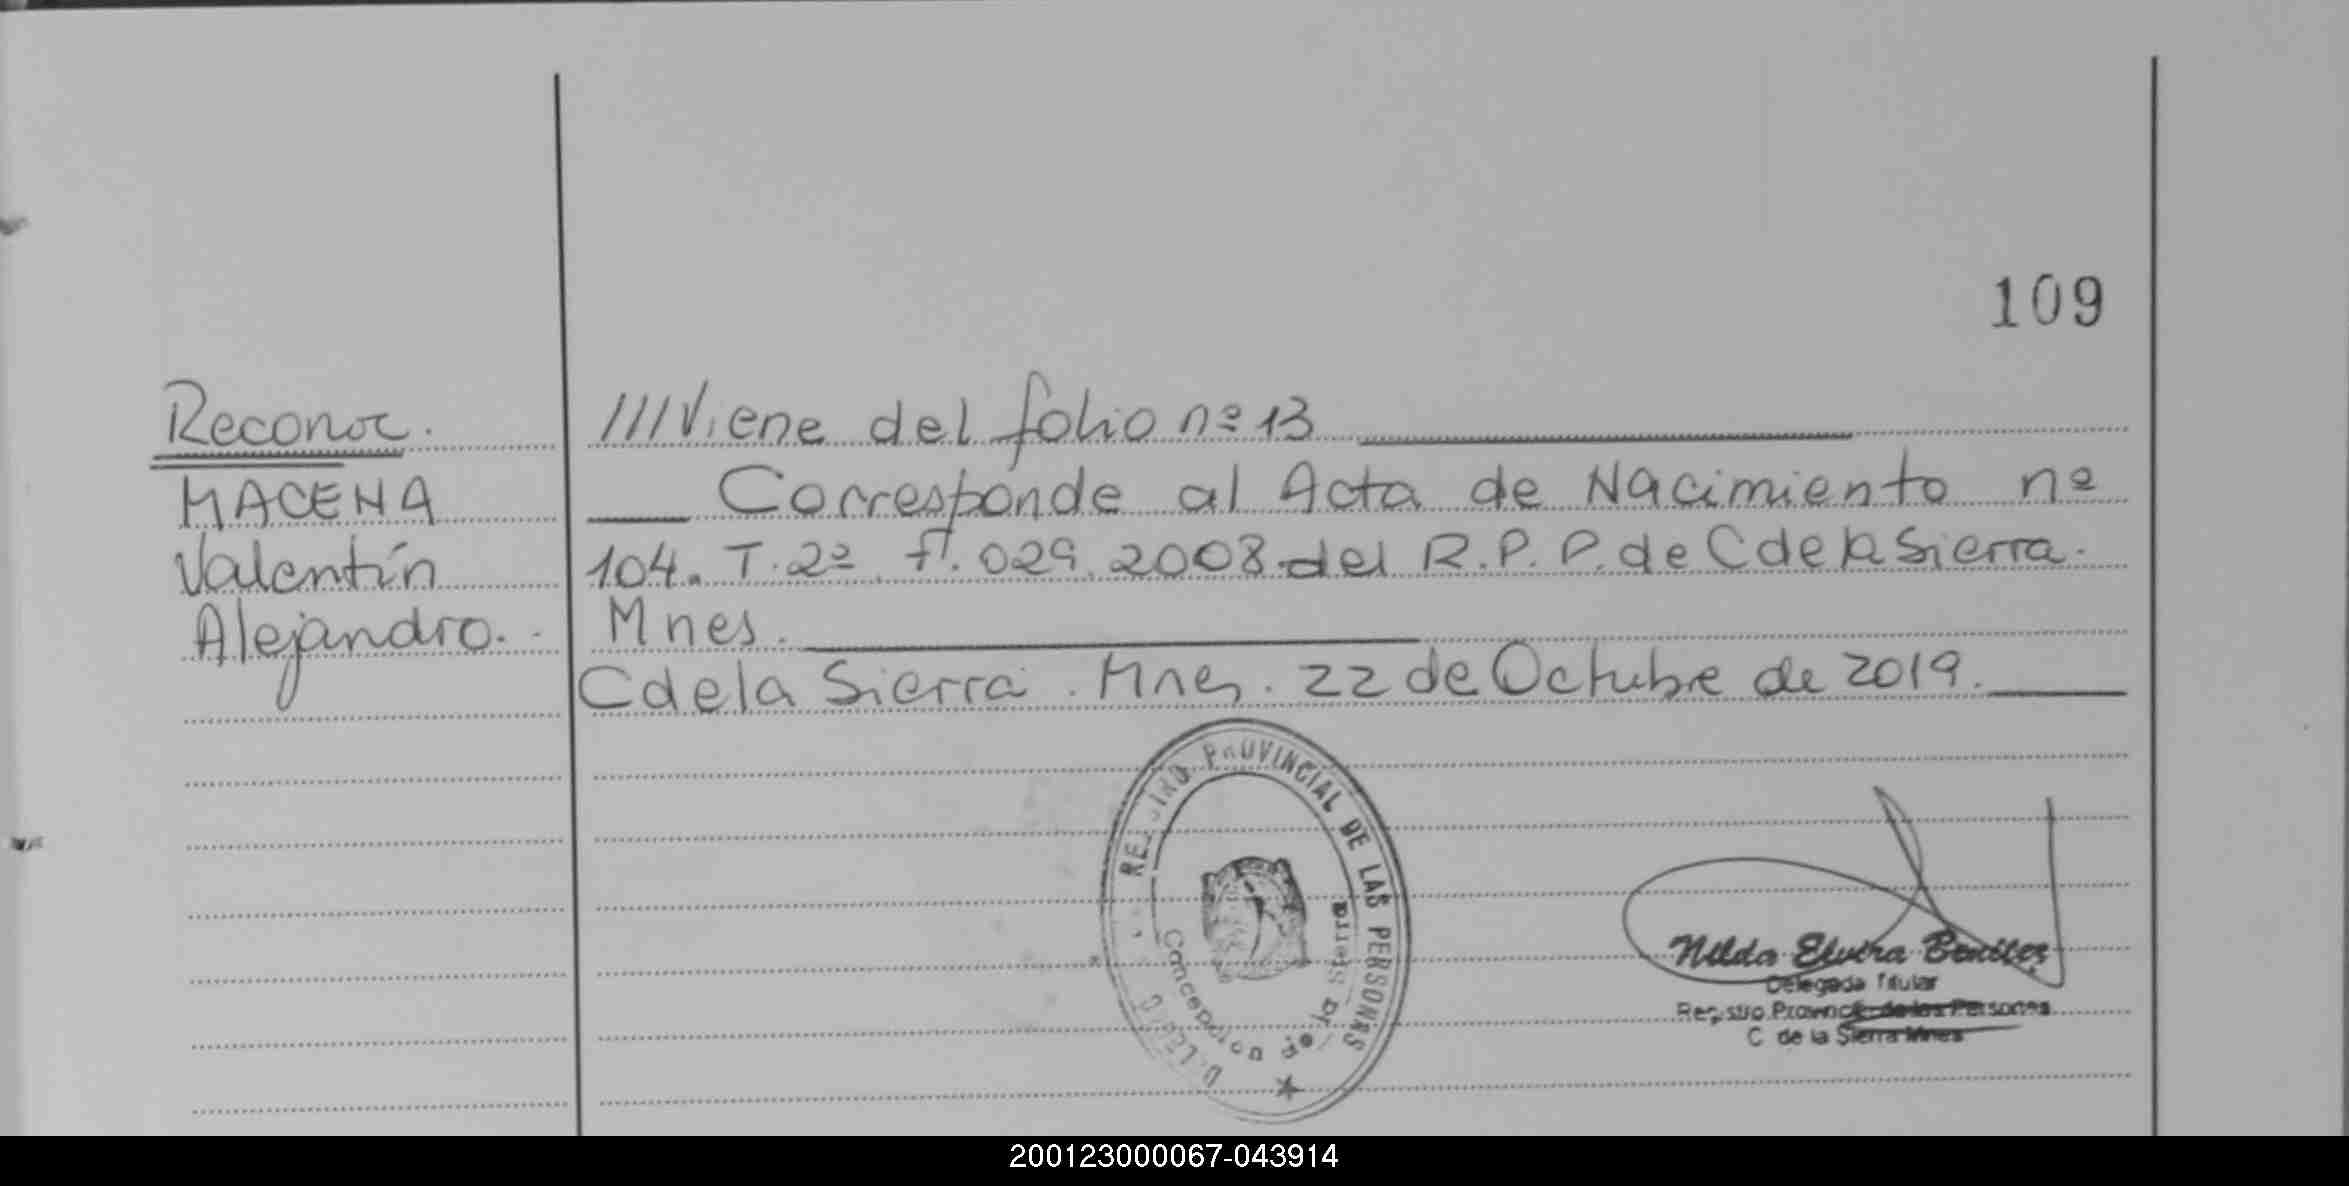 109
Reconoc.
MACENA
Valentín
Alejandro.
///Viene del folio nº 13
Corresponde al Acta de Nacimiento nº
104. T. 2º fº. 029. 2008 del R.P.P. de C de la Sierra.
Mnes.
C de la Sierra. Mnes. 22 de Octubre de 2019.
REGISTRO PROVINCIAL DE LAS PERSONAS
Concepción de la Sierra
Nilda Elvira Benitez
Delegada Titular
Registro Provinc. de las Personas
C de la Sierra Mnes
200123000067-043914